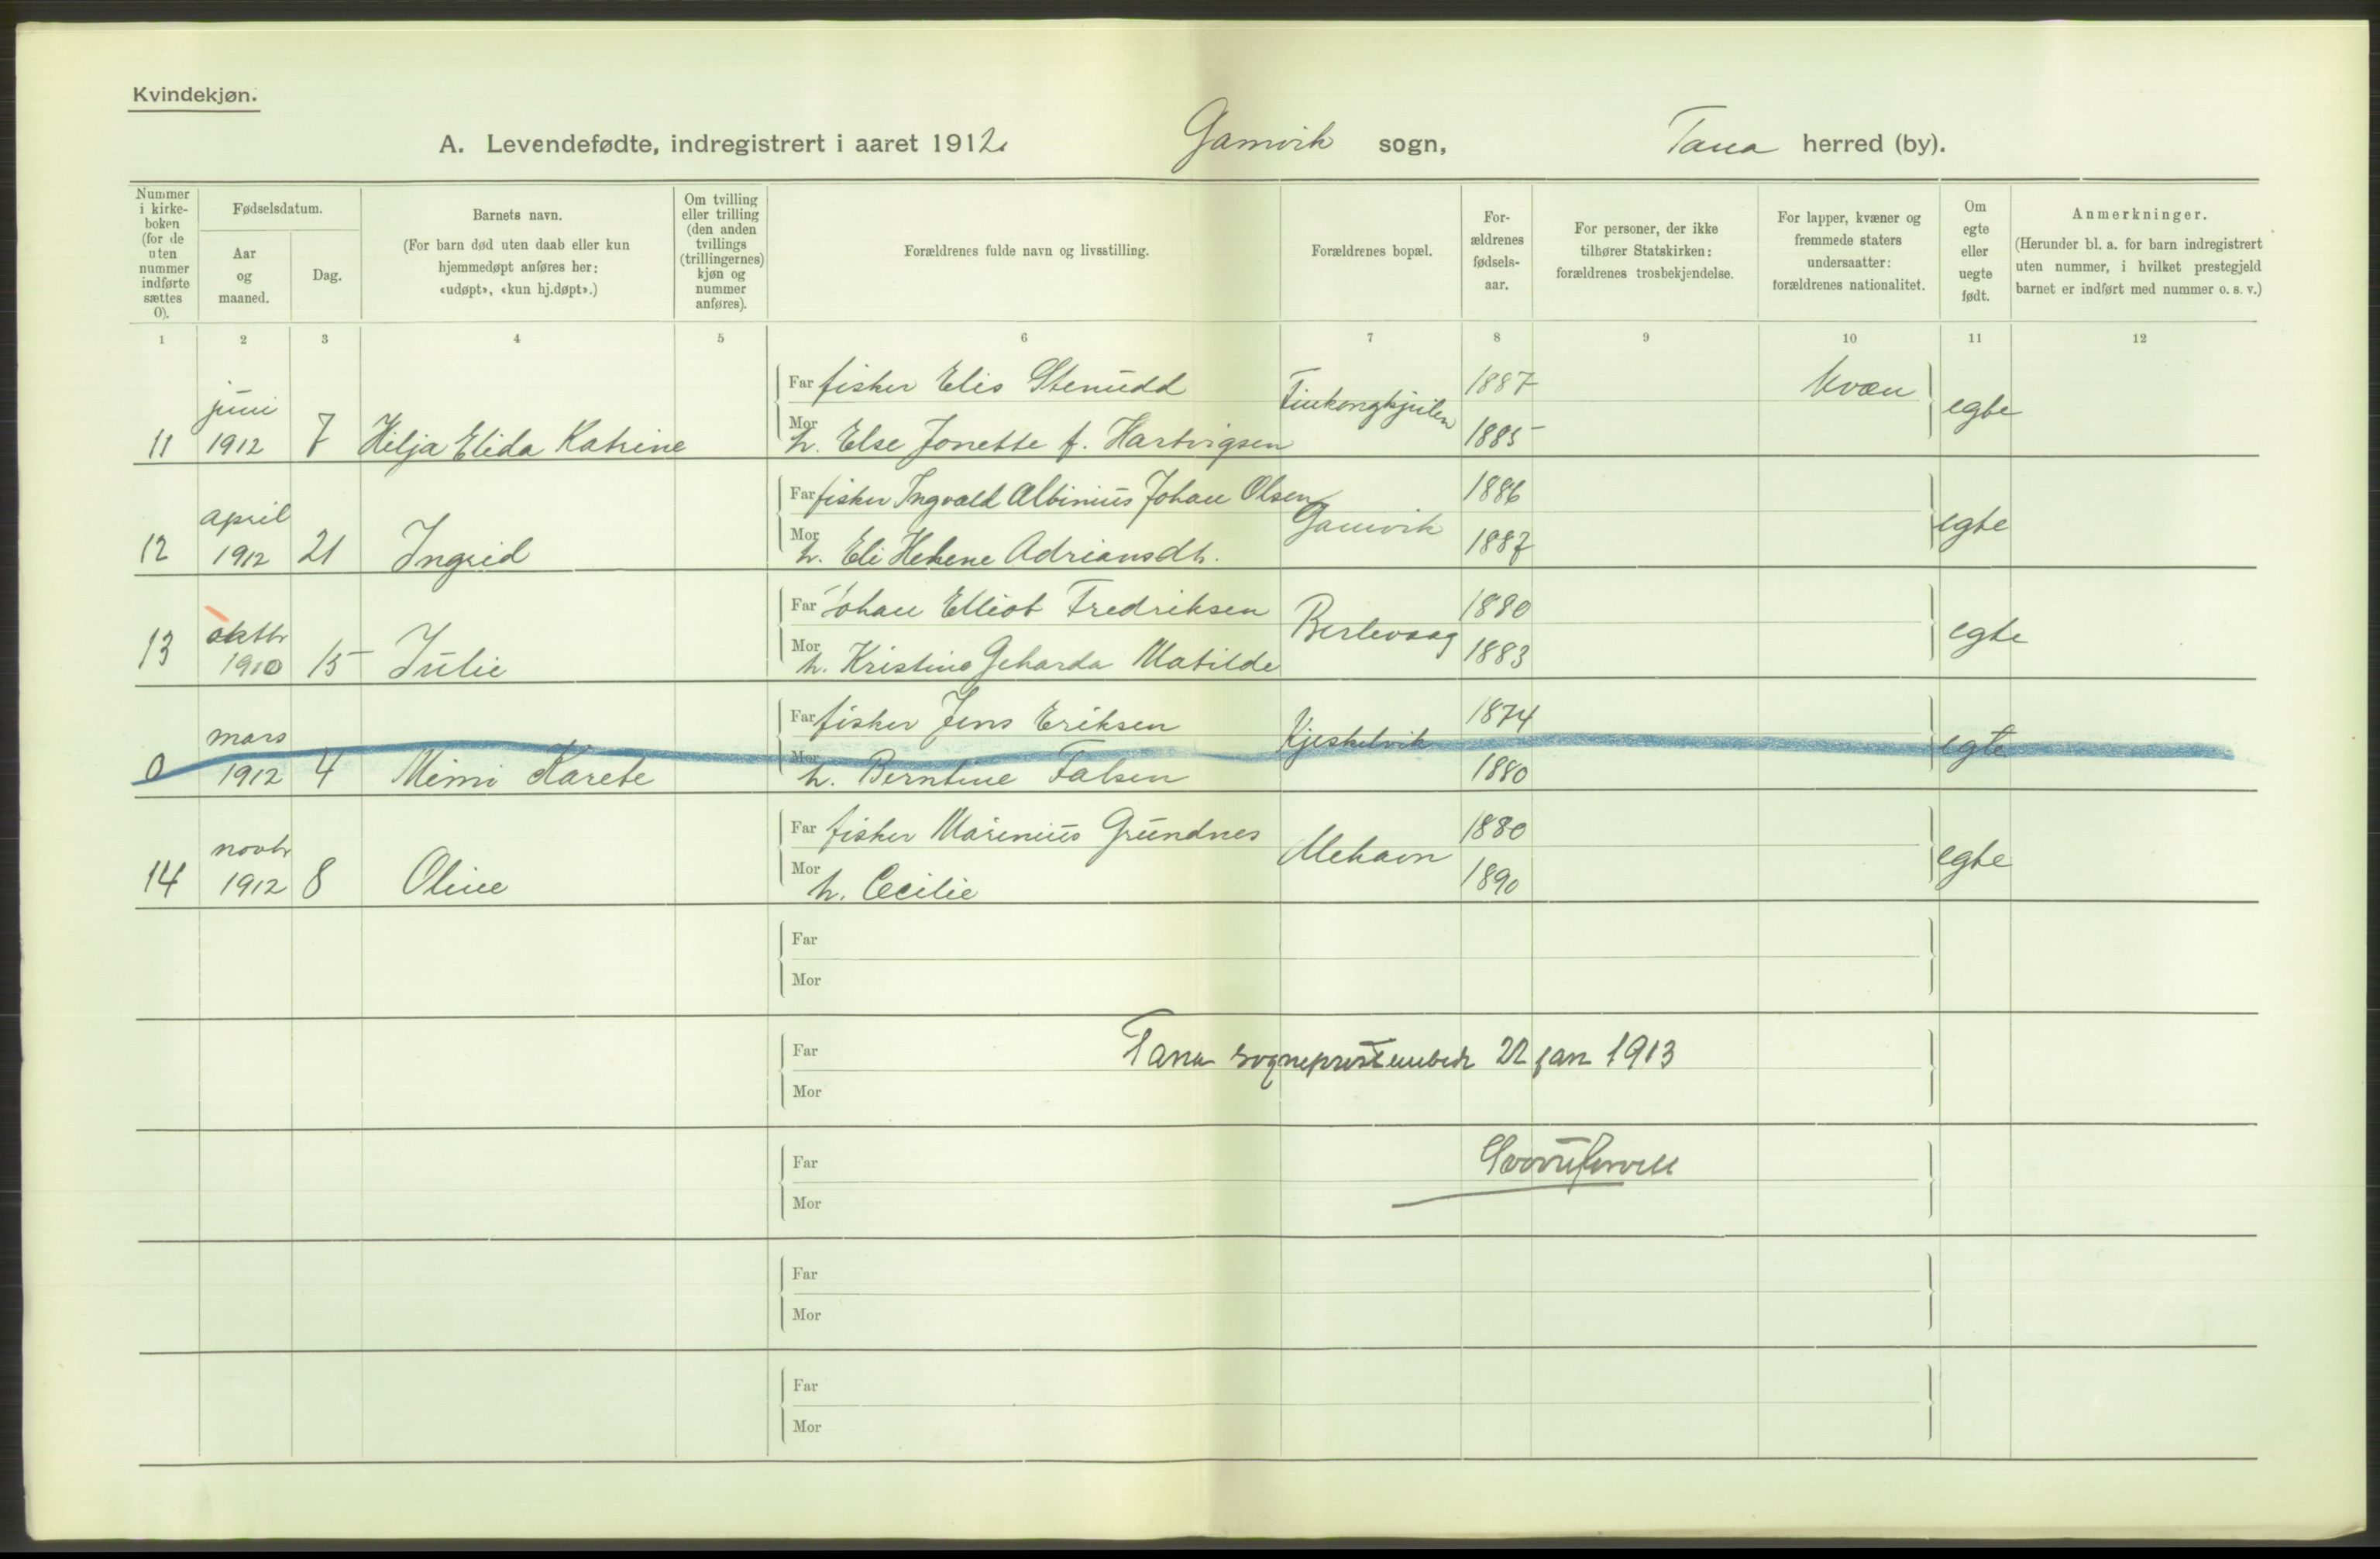 Kvindekjøn.
A. Levendefødte, indregistrert i aaret 1912. Gamvik sogn, Tana herred (by).
Nummer i kirkeboken (for de uten nummer indførte sættes 0).
Fødselsdatum.
Aar og maaned.
Dag.
Barnets navn.
(For barn død uten daab eller kun hjemmedøpt anføres her: «udøpt», «kun hj.døpt».)
Om tvilling eller trilling (den anden tvillings (trillingernes) kjøn og nummer anføres).
Forældrenes fulde navn og livsstilling.
Forældrenes bopæl.
Forældrenes fødselsaar.
For personer, der ikke tilhører Statskirken: forældrenes trosbekjendelse.
For lapper, kvæner og fremmede staters undersaatter: forældrenes nationalitet.
Om egte eller uegte født.
Anmerkninger.
(Herunder bl. a. for barn indregistrert uten nummer, i hvilket prestegjeld barnet er indført med nummer o. s. v.)
1 2 3 4 5 6 7 8 9 10 11 12
Far fisker Elis Stenudd 1887 kvæn
11 juni 1912 7 Hilja Elida Katrine Finkongkjeilen egte
Mor h. Else Jonette f. Hartvigsen 1885
Far fisker Ingvald Albinius Johan Olsen 1886
12 april 1912 21 Ingrid Gamvik egte
Mor h. Eli Helene Adriansdtr. 1887
Far Johan Elliot Fredriksen 1880
13 oktbr 1910 15 Julie Berlevaag egte
Mor h. Kristine Geharda Matilde 1883
Far fisker Jens Eriksen 1874
0 mars 1912 4 Mimi Karete Kjeskelvik egte
Mor h. Berntine Falsen 1880
Far fisker Marenius Grundnes 1880
14 novbr 1912 8 Oline Mehavn egte
Mor h. Cecilie 1890
Far
Mor
Far
Tana sogneprestembede 22 jan 1913
Mor
Far
Mor
Far
Mor
Far
Mor